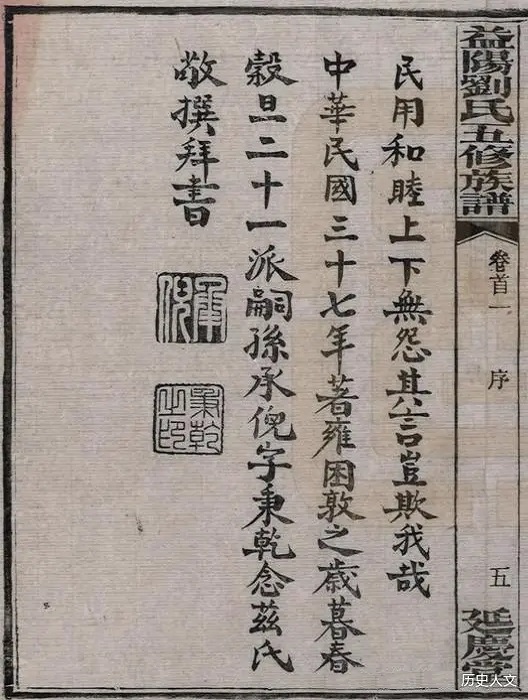 益陽劉氏五修族譜
卷首一
序
五
延慶堂
民用和睦上下無怨其言豈欺我哉
中華民國三十七年著雍困敦之歲暮春
穀旦二十一派嗣孫承倪字秉乾念茲氏
敬撰拜書
承倪
秉乾之印
历史人文